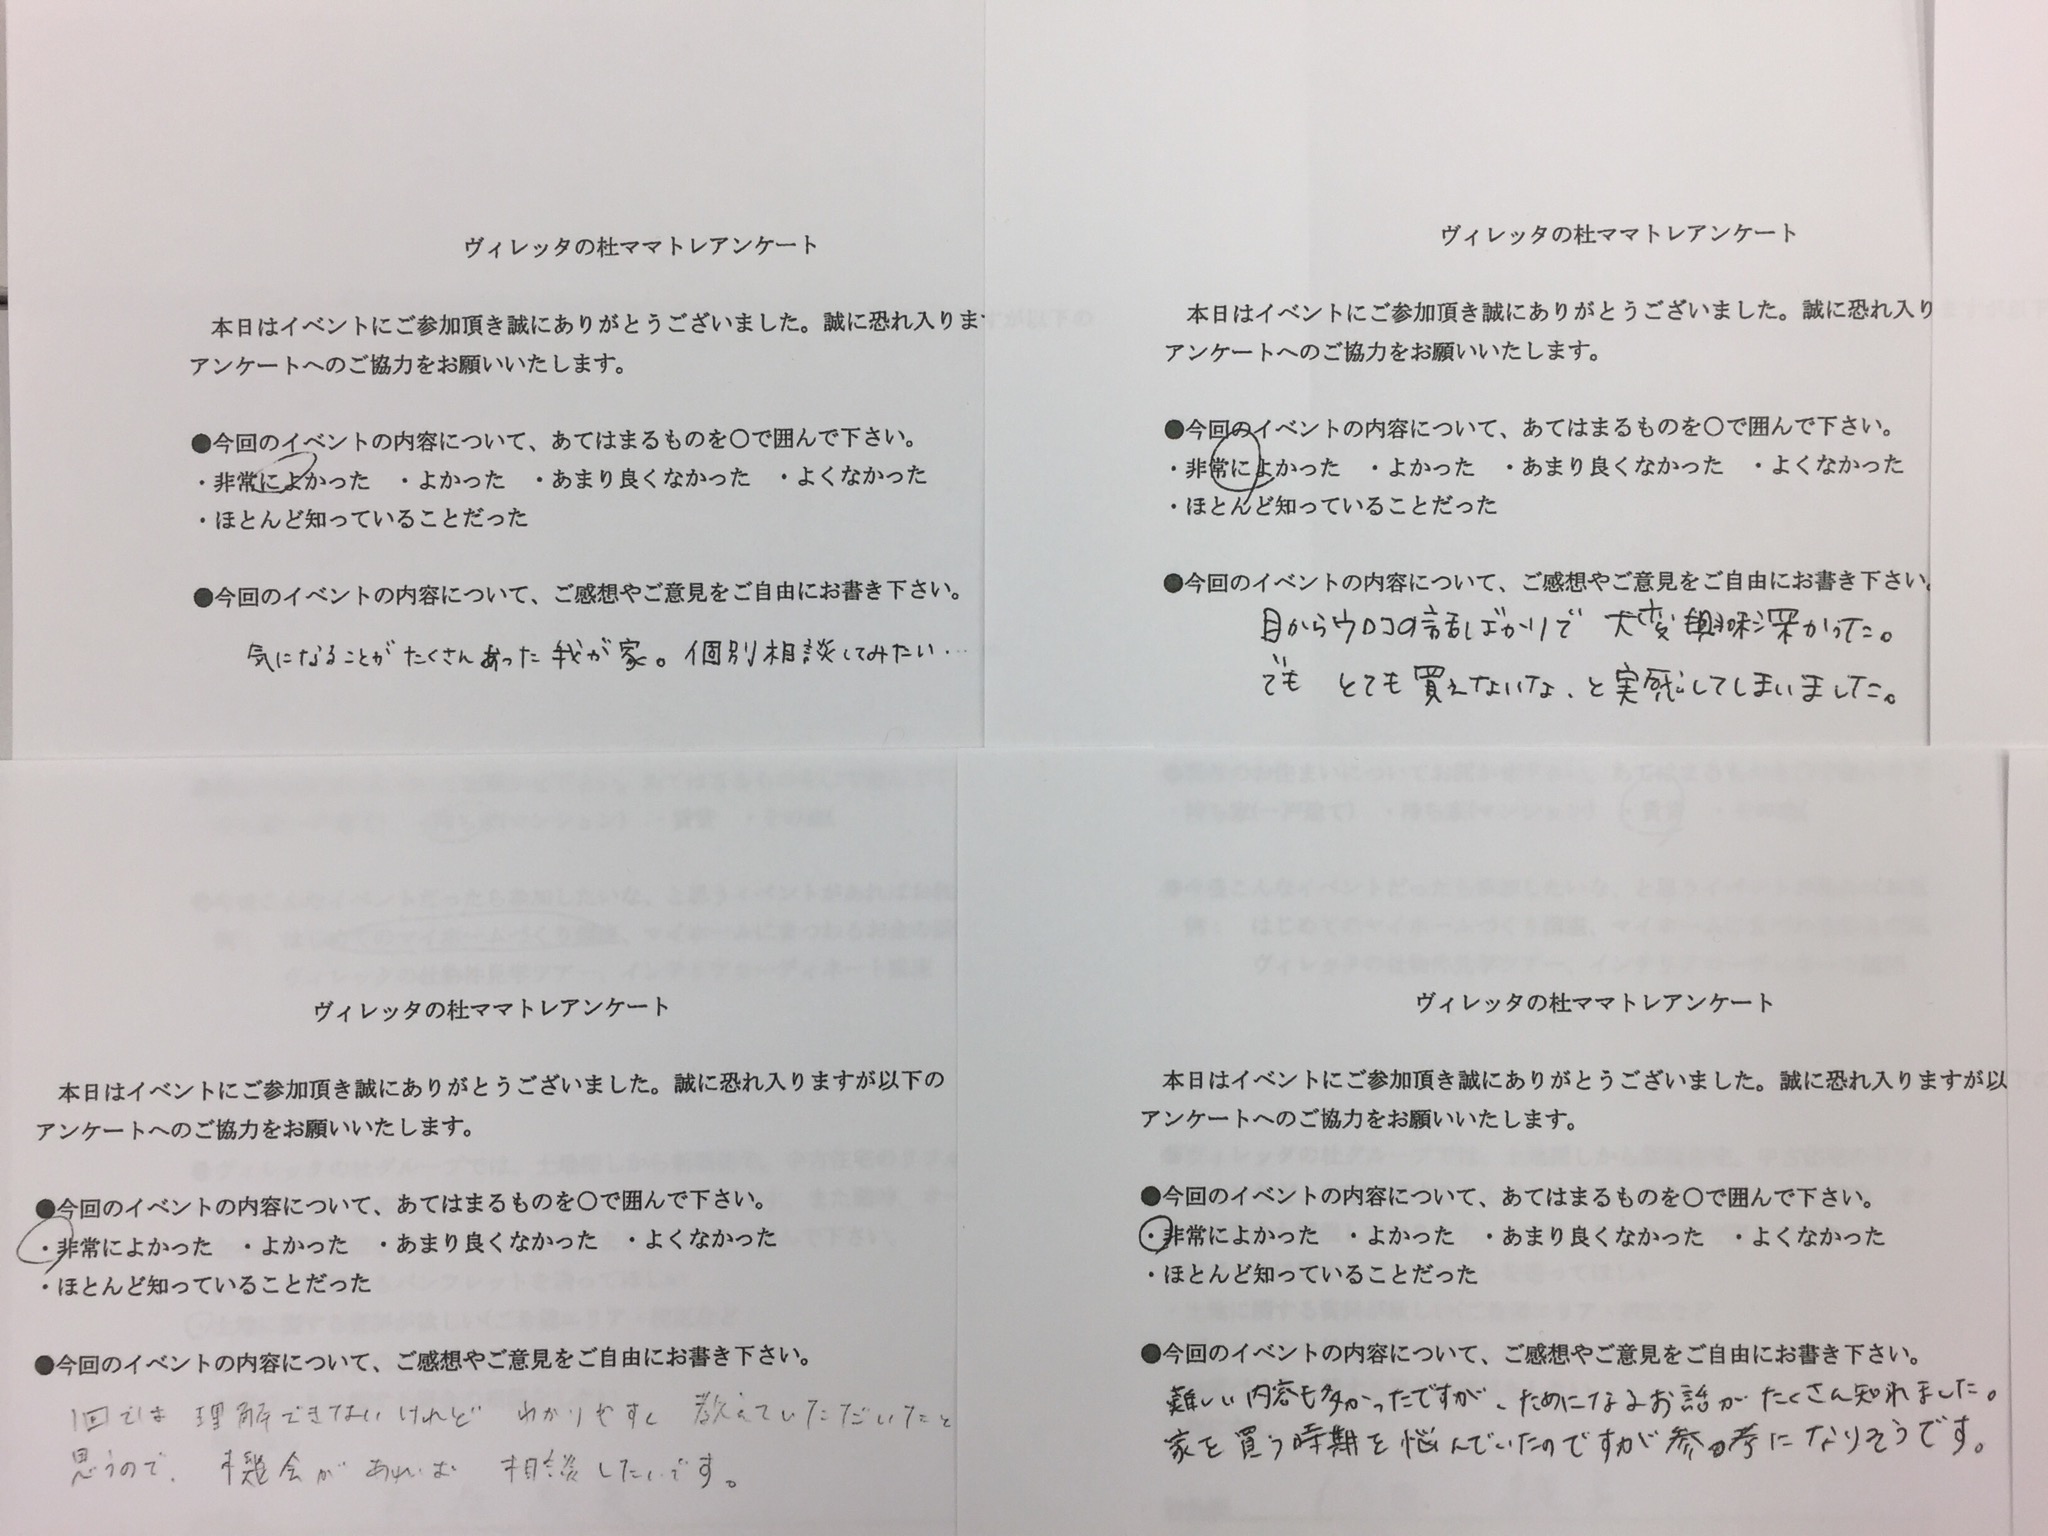 ヴィレッタの杜ママトレアンケート
本日はイベントにご参加頂き誠にありがとうございました。誠に恐れ入りま
アンケートへのご協力をお願いいたします。
●今回のイベントの内容について、あてはまるものを〇で囲んで下さい。
・非常によかった ・よかった ・あまり良くなかった ・よくなかった
・ほとんど知っていることだった
●今回のイベントの内容について、ご感想やご意見をご自由にお書き下さい。
気になることがたくさんあった我が家。個別相談してみたい…
ヴィレッタの杜ママトレアンケート
本日はイベントにご参加頂き誠にありがとうございました。誠に恐れ入り
アンケートへのご協力をお願いいたします。
●今回のイベントの内容について、あてはまるものを〇で囲んで下さい。
・非常によかった ・よかった ・あまり良くなかった ・よくなかった
・ほとんど知っていることだった
●今回のイベントの内容について、ご感想やご意見をご自由にお書き下さい。
目からウロコの話ばかりで 大変興味深かった。
でも とても買えないな、と実感してしまいました。
ヴィレッタの杜ママトレアンケート
本日はイベントにご参加頂き誠にありがとうございました。誠に恐れ入りますが以下の
アンケートへのご協力をお願いいたします。
●今回のイベントの内容について、あてはまるものを〇で囲んで下さい。
・非常によかった ・よかった ・あまり良くなかった ・よくなかった
・ほとんど知っていることだった
●今回のイベントの内容について、ご感想やご意見をご自由にお書き下さい。
1回では 理解できないけれど わかりやすく 教えていただいたと
思うので、機会があれば 相談したいです。
ヴィレッタの杜ママトレアンケート
本日はイベントにご参加頂き誠にありがとうございました。誠に恐れ入りますが以
アンケートへのご協力をお願いいたします。
●今回のイベントの内容について、あてはまるものを〇で囲んで下さい。
・非常によかった ・よかった ・あまり良くなかった ・よくなかった
・ほとんど知っていることだった
●今回のイベントの内容について、ご感想やご意見をご自由にお書き下さい。
難しい内容も多かったですが、ためになるお話がたくさん知れました。
家を買う時期を悩んでいたのですが参考になりそうです。